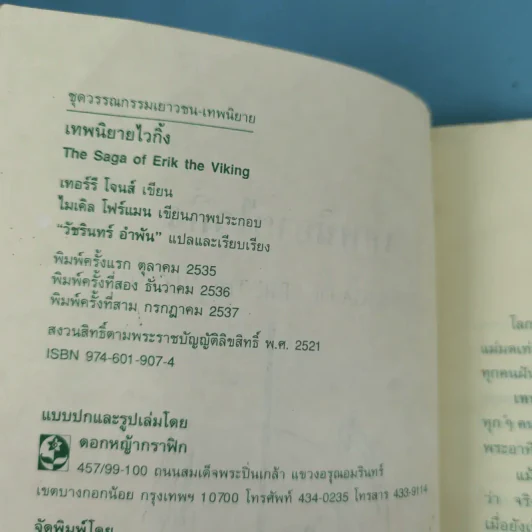 ชุดวรรณกรรมเยาวชน-เทพนิยาย
เทพนิยายไวกิ้ง
The Saga of Erik the Viking
เทอร์รี โจนส์ เขียน
ไมเคิล โฟร์แมน เขียนภาพประกอบ
"วัชรินทร์ อำพัน" แปลและเรียบเรียง
พิมพ์ครั้งแรก ตุลาคม 2535
พิมพ์ครั้งที่สอง ธันวาคม 2536
พิมพ์ครั้งที่สาม กรกฎาคม 2537
สงวนสิทธิ์ตามพระราชบัญญัติลิขสิทธิ์ พ.ศ. 2521
ISBN 974-601-907-4
แบบปกและรูปเล่มโดย
ดอกหญ้ากราฟิก
457/99-100 ถนนสมเด็จพระปิ่นเกล้า แขวงอรุณอมรินทร์
เขตบางกอกน้อย กรุงเทพฯ 10700 โทรศัพท์ 434-0235 โทรสาร 433-9114
จัดพิมพ์โดย
โลก
แม่มดเท่
ทุกคนฝัน
ทุก ๆ คน
พระอาทิ
แม้
ว่า จริ
เมื่อยัง